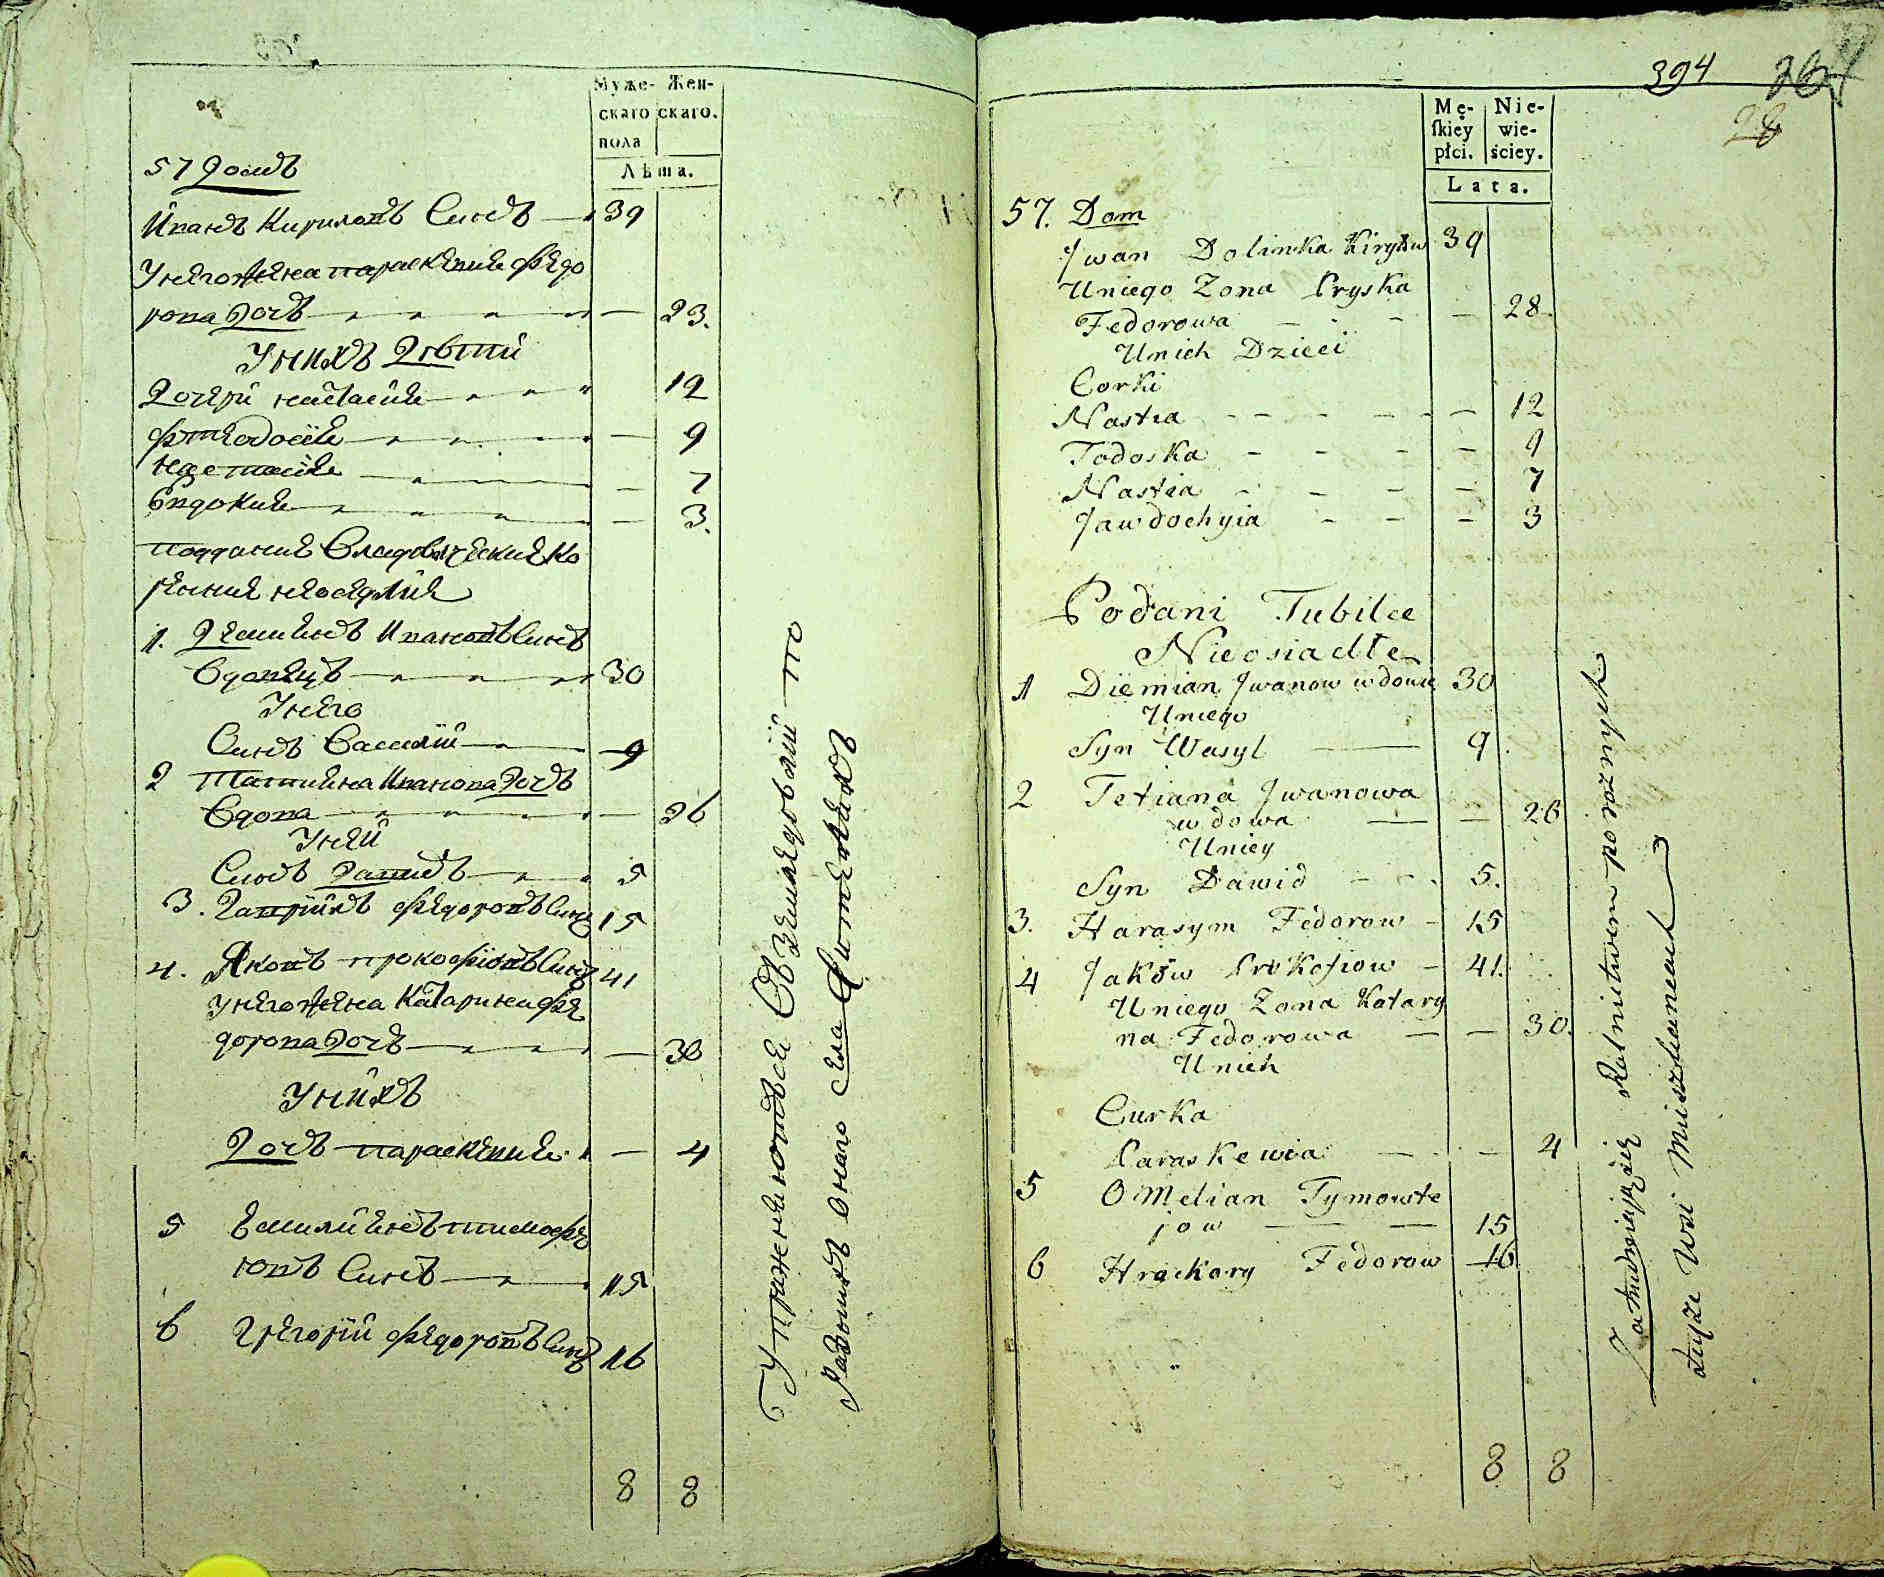 Муже- Жен-
скаго скаго.
пола
Лѣта.
57 Домъ
Иванъ Кириловъ Синъ 39
Унегожена параскевия Федо
рова Дочъ 23.
Унихъ Дѣти
Дочери настасия 12
Фтеодосия 9
настасия 7
Евдокия 3.
поддание
неоседлие
1. Демиянъ Ивановъ Синъ
Вдовецъ 30
Унего
Синъ Василий 9
2 Татияна Иванова Дочъ
Вдова 26
Уней
Синъ Давидъ 5
3. Федоровъ Синъ 15
4. Яковъ прокофиовъ Синъ 41
Унегожена Катарина Фе
дорова Дочъ 30
Унихъ
Дочъ параскевия 4
5 Емилиянъ тимофе
ювъ Синъ 15
6 Григорий Федоровъ Синъ 16
8 8
Упражняютъся
онаго села
394
28
Mę- Nie-
ſkiey wie-
płci. ściey.
Lata.
57. Dom
Jwan Dolinka Kiryłow 39
Uniego Zona Pryska
Fedorowa 28.
Unich Dzieci
Corki
Nastia 12
Todoska 9
Nastia 7
Jawdochyia 3
Podani Tubilce
Nieosiadłe
1 Diemian Jwanow wdowiec 30
Uniego
Syn Wasyl 9
2 Tetiana Jwanowa
wdowa 26
Uniey
Syn Dawid 5.
3. Harasym Fedorow 15
4 Jaków Prokofiow 41.
Uniego Zona Katary
na Fedorowa 30.
Unich
Curka
Paraskewia 4
5 Omelian Tymowte
jow 15
6 Hrychory Fedorow 16
8 8
Zatrudniaią się Rolnictwem po roznych
tuyze Wsi Mieszkancach